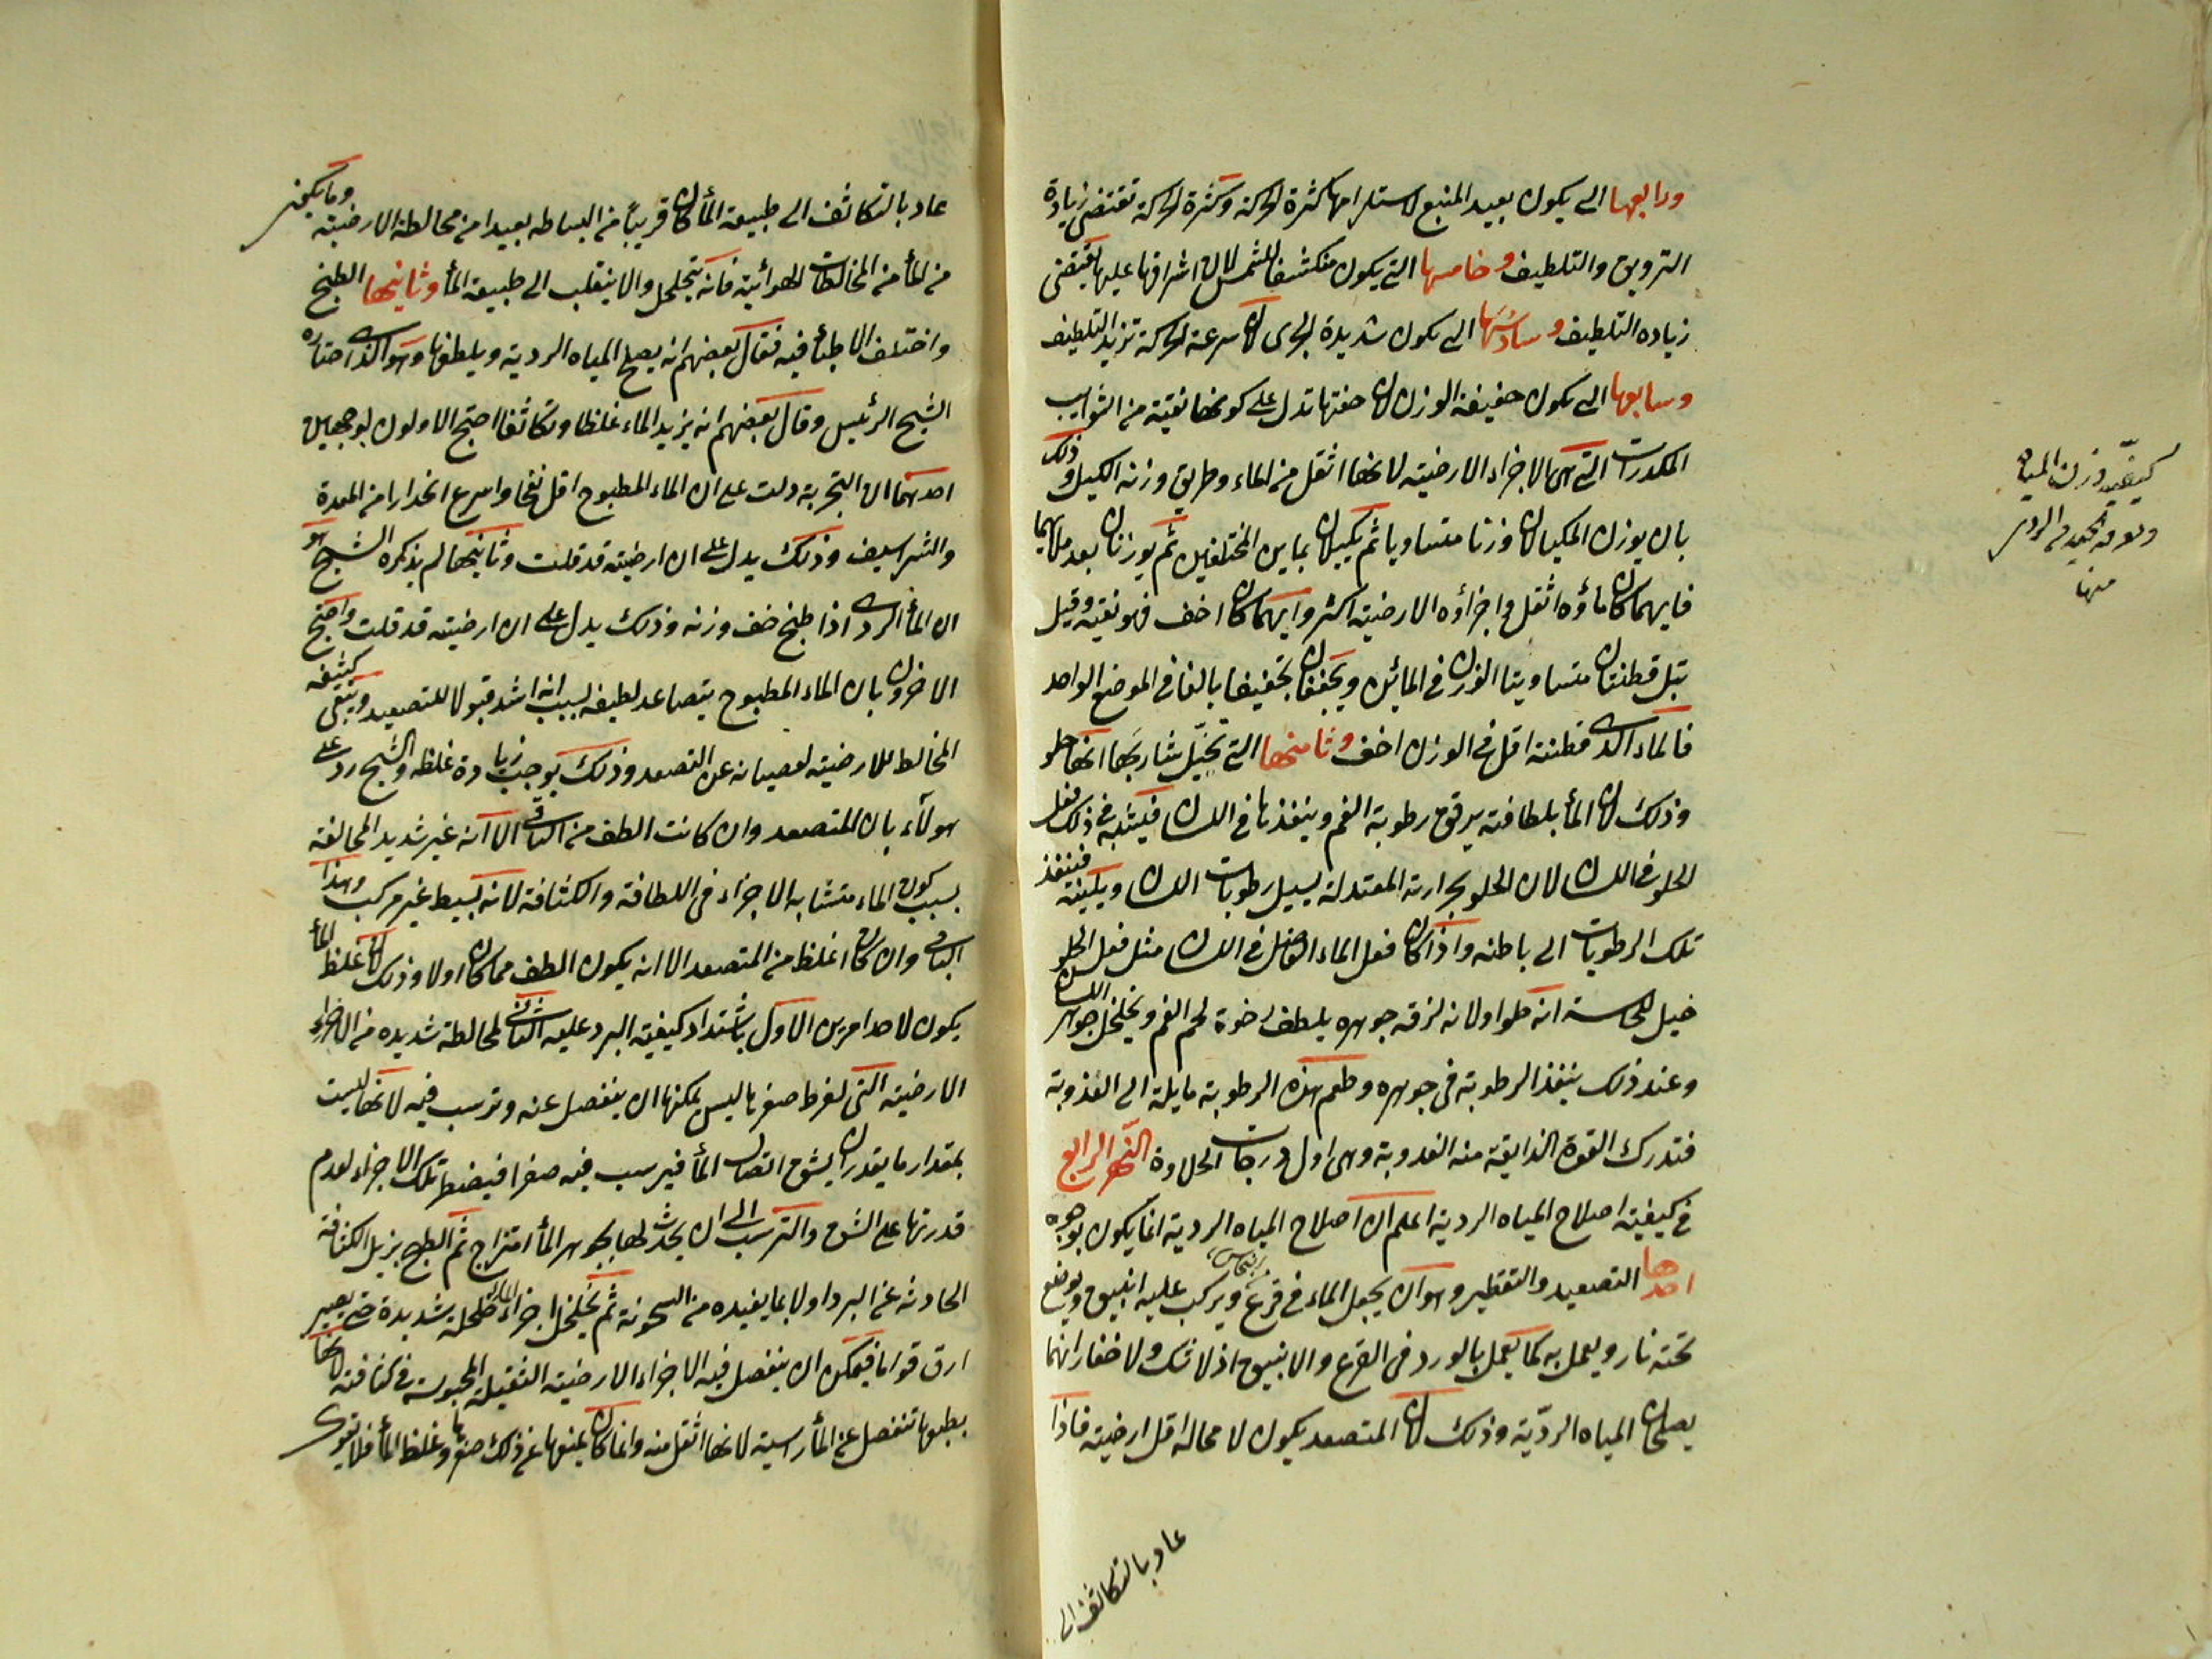 ورابعها التي يكون بعيد المنبع لاستلزامها كثرة الحركة وكثرة الحركة تقتضي زيادة
الترويق والتلطيف وخامسها التي يكون منكشفا للشمس لان اشراقها عليها يقتضي
زياده التلطيف وسادسها التي يكون شديدة الجرى لان سرعة الحركة تزيد التلطيف
وسابعها التي يكون خفيفة الوزن لان خفتها تدل على كونها نقية من الشوايب
المكدرات التي هي الاجزاء الارضية لانها اثقل من الماء وطريق وزنه الكيل وذلك
بان يوزن المكيالان وزنا متساويا ثم يكيلان بماين المختلفين ثم يوزنان بعد ملائهما
فايهما كان ماؤه اثقل واجزاؤه الارضية اكثر وايهما كان اخف فهو نقيه وقيل
تبل قطنتان متساويتا الوزن في المائين ويجففان تجفيفا بالغا في الموضع الواحد
فالماء الذي قطنته اقل في الوزن اخف وثامنها التي تخيل شاربها انها حلو
وذلك لان الماء بلطافته يرقق رطوبة الفم وينفذها في اللسان فيشبه في ذلك فعل
الحلو في اللسان لان الحلو بحرارته المعتدلة يسيل رطوبات اللسان ويلينه فينفذ
تلك الرطوبات الى باطنه واذا كان فعل الماء الفاضل في اللسان مثل فعل الحلو
خيل للحاسة انه حلو اولانه لرقة جوهره يلطف رخوة لحم الفم ويخلخل جوهر اللسان
وعند ذلك ينفذ الرطوبة في جوهره وطعم هذه الرطوبة مايلة الى العذوبة
فتدرك القوة الذايقة منه العذوبة وهي اول درجات الحلاوة النهر الرابع
في كيفية اصلاح المياه الردية اعلم ان اصلاح المياه الردية انما يكون بوجوه
احدها التصعيد والتقطير وهو ان يجعل الماء في قرع ويركب عليه انبيق ويوضع
تحته نار ويعمل به كما يعمل بالورد في القرع والانبيق اذ لا شك ولا خفاء انهما
يصلحان المياه الردّية وذلك لان المتصعد يكون لا محالة اقل ارضية فاذا
عاد بالتكاثف الى
كيفية وزن المياه
ومعرفة الجيد من الردي
منها
عاد بالتكاثف الى طبيعة الماء كان قريباً من البساطه بعيدا من مخالطة الارضية وما يكون
من الماء من المخالطات الهوائية فانه يتخلخل والا ينقلب الى طبيعة الماء وثانيها الطبخ
واختلف الاطباء فيه فقال بعضهم انه يصلح المياه الردية ويلطفها وهو الذي اختاره
الشيخ الرئيس وقال بعضهم انه يزيد الماء غلظا وتكاثفا احتج الاولون بوجهين
احدهما ان التجربة دلت على ان الماء المطبوخ اقل نفخا واسرع انحدارا من المعدة
والشراسيف وذلك يدل على ان ارضيته قد قلت وثانيهما لم يذكره الشيخ هو
ان الماء الردي اذا طبخ خف وزنه وذلك يدل على ان ارضيته قد قلت واحتج
الاخرون بان الماء المطبوخ يتصاعد لطيفه لسبب انه اشد قبولا للتصعيد ويبقى كثيفه
المخالط للارضية لعصيانه عن التصعد وذلك يوجب زيادة غلظه والشيخ رد على
هولآء بان المتصعد وان كانت الطف من الباقي الا انه غير شديد المخالفة
بسبب كون الماء متشابه الاجزاء في اللطافة والكثافة لانه بسيط غير مركب وهذا
الباقي وان كان اغلظ من المتصعد الا انه يكون الطف مما كان اولا وذلك لان غلظ الماء
يكون لاحد امرين الاول باشتداد كيفية البرد عليه الثاني لمخالطة شديده من الاجزاء
الارضية التي لفرط صغرها ليس يمكنها ان ينفصل عنه وترسب فيه لانها ليست
بمقدار ما يقدر ان يشق اتصال الماء فيرسب فيه صغرا فيضطر تلك الاجزاء لعدم
قدرتها على الشق والترسب الى ان يحدث لها بجوهر الماء امتزاج ثم الطبخ يزيل الكثافة
الحادثة عن البرد اولا بما يفيده من السخونة ثم يخلخل اجزاء الماء خلخلة شديدة حتى يصير
ارق قواما فيمكن ان ينفصل فيه الاجزاء الارضية الثقيلة المحبوسة في كثافته لانها
بطبعها تنفصل عن الماء راسبة لانها اثقل منه وانما كان يمنعها عن ذلك صغرها وغلظ الماء فلا يقوى